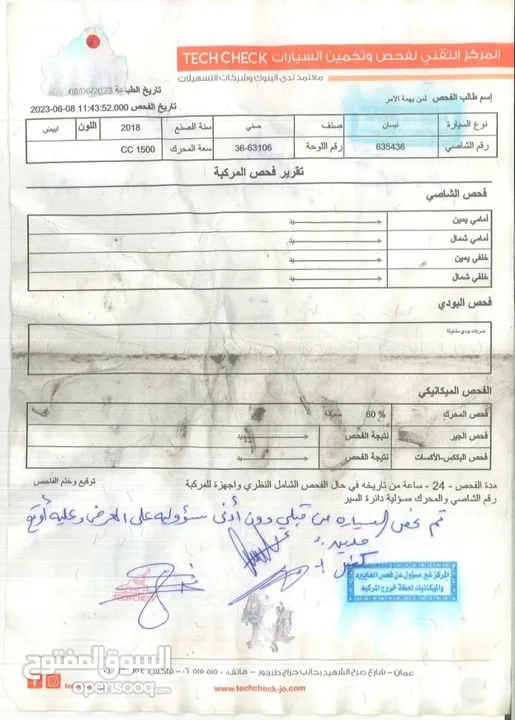 المركز التقني لفحص وتخمين السيارات TECH CHECK
معتمد لدى البنوك وشركات التسهيلات
تاريخ الطباعة 08/06/2023
إسم طالب الفحص لمن يهمة الامر
تاريخ الفحص 2023-06-08 11:43:52.000
نوع السيارة نيسان صنف صني سنة الصنع 2018 اللون ابيض
رقم الشاصي 635436 رقم اللوحة 36-63106 سعة المحرك CC 1500
تقرير فحص المركبة
فحص الشاصي
أمامي يمين جيد
أمامي شمال جيد
خلفي يمين جيد
خلفي شمال جيد
فحص البودي
ضربات بودي مشغولة
الفحص الميكانيكي
فحص المحرك 60 %
فحص الجير نتيجة الفحص جيد
فحص البكس-الأكسات نتيجة الفحص جيد
مدة الفحص - 24 - ساعة من تاريخه في حال الفحص الشامل النظري واجهزة للمركبة
توقيع وختم الفاحص
رقم الشاصي والمحرك مسؤلية دائرة السير
تم فحص السياره من قبلي دون أدنى مسؤوليه على المعرض وعليه أوقع
المركز غير مسؤول عن فحص الهايبرد
والميكانيك لحظة خروج المركبة
TECHCHECK
عمان - شارع صرح الشهيد بجانب حراج طبربور - هاتف:
www.techcheck-jo.com
السوق المفتوح
opensooq.com